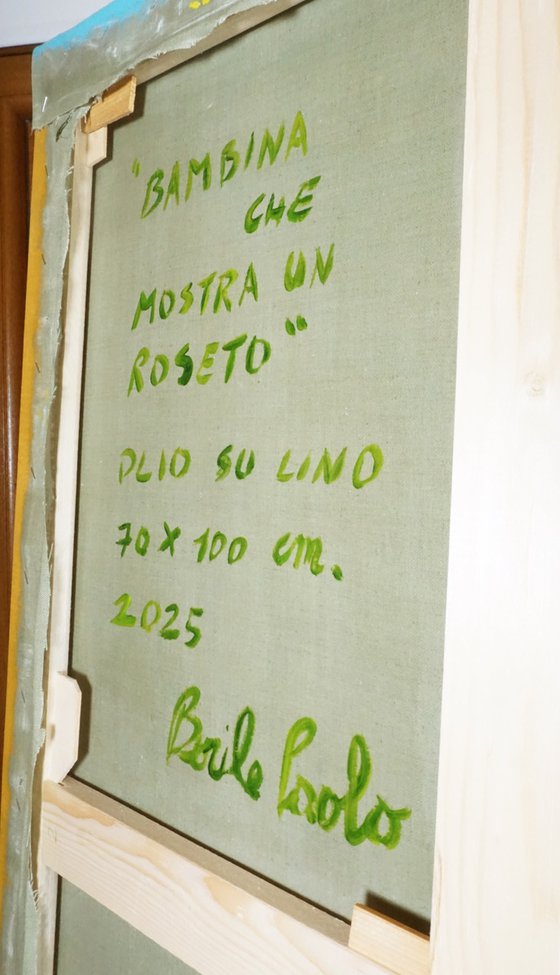 "BAMBINA
CHE
MOSTRA UN
ROSETO"
OLIO SU LINO
70 X 100 cm.
2025
Borile Paolo